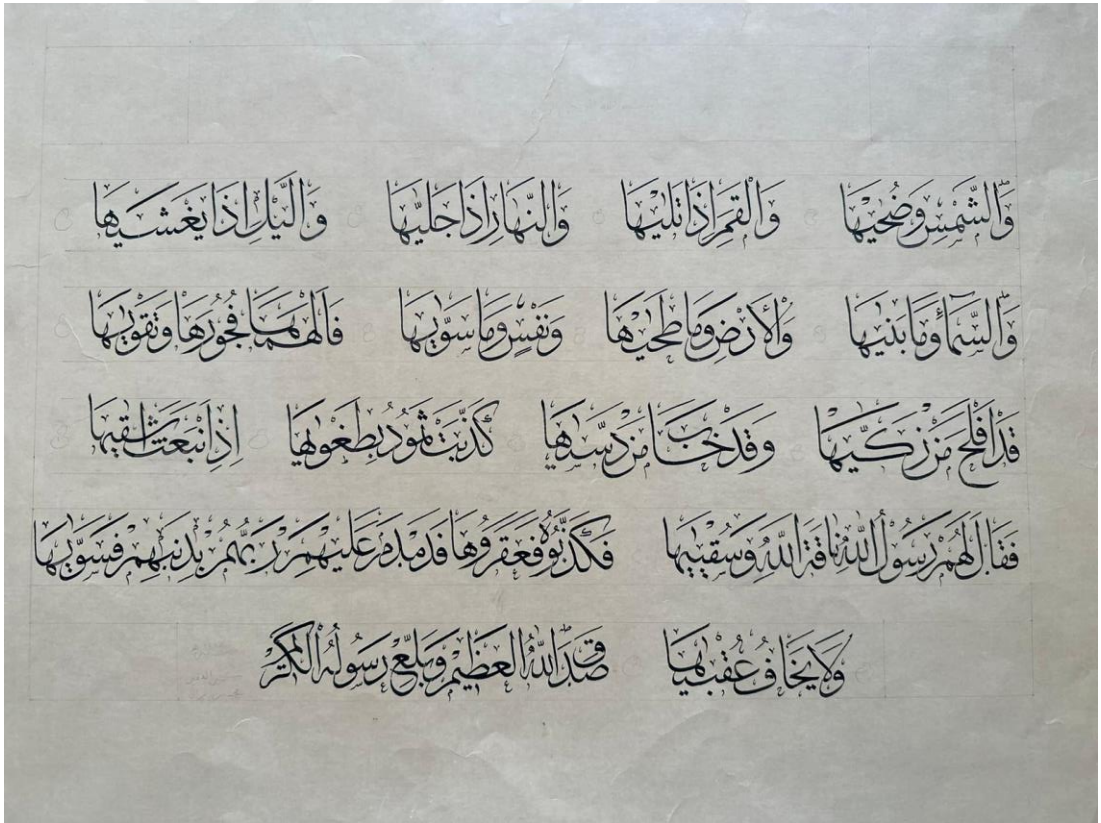 وَالشَّمْسِ وَضُحٰيهَا وَالْقَمَرِ اِذَا تَلٰيهَا وَالنَّهَارِ اِذَا جَلّٰيهَا وَالَّيْلِ اِذَا يَغْشٰيهَا
وَالسَّمَآءِ وَمَا بَنٰيهَا وَالْاَرْضِ وَمَا طَحٰيهَا وَنَفْسٍ وَمَا سَوّٰيهَا فَاَلْهَمَهَا فُجُورَهَا وَتَقْوٰيهَا
قَدْ اَفْلَحَ مَنْ زَكّٰيهَا وَقَدْ خَابَ مَنْ دَسّٰيهَا كَذَّبَتْ ثَمُودُ بِطَغْوٰيهَا اِذِ انْبَعَثَ اَشْقٰيهَا
فَقَالَ لَهُمْ رَسُولُ اللّٰهِ نَاقَةَ اللّٰهِ وَسُقْيٰيهَا فَكَذَّبُوهُ فَعَقَرُوهَا فَدَمْدَمَ عَلَيْهِمْ رَبُّهُمْ بِذَنْبِهِمْ فَسَوّٰيهَا
وَلَا يَخَافُ عُقْبٰيهَا صَدَقَ اللّٰهُ الْعَظِيمُ وَبَلَّغَ رَسُولُهُ الْكَرِيمُ